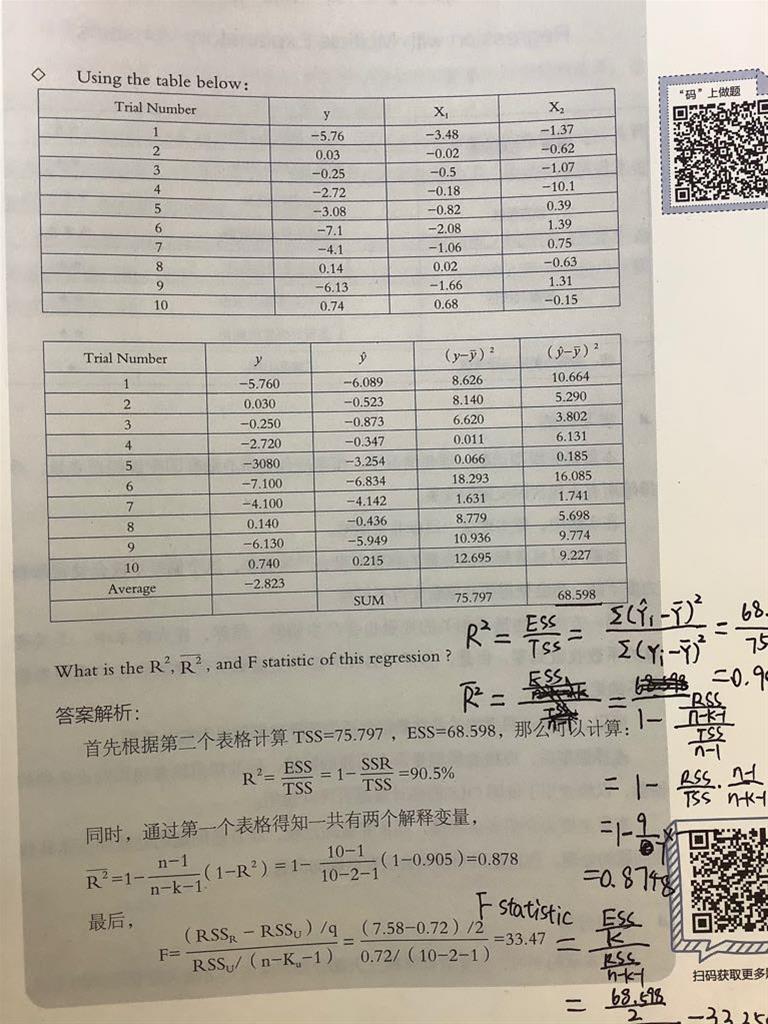 Using the table below:
Trial Number y X₁ X₂
1 −5.76 −3.48 −1.37
2 0.03 −0.02 −0.62
3 −0.25 −0.5 −1.07
4 −2.72 −0.18 −10.1
5 −3.08 −0.82 0.39
6 −7.1 −2.08 1.39
7 −4.1 −1.06 0.75
8 0.14 0.02 −0.63
9 −6.13 −1.66 1.31
10 0.74 0.68 −0.15
“码”上做题
Trial Number y ŷ (y−ȳ)² (ŷ−ȳ)²
1 −5.760 −6.089 8.626 10.664
2 0.030 −0.523 8.140 5.290
3 −0.250 −0.873 6.620 3.802
4 −2.720 −0.347 0.011 6.131
5 −3080 −3.254 0.066 0.185
6 −7.100 −6.834 18.293 16.085
7 −4.100 −4.142 1.631 1.741
8 0.140 −0.436 8.779 5.698
9 −6.130 −5.949 10.936 9.774
10 0.740 0.215 12.695 9.227
Average −2.823
SUM 75.797 68.598
What is the R², R̄², and F statistic of this regression?
答案解析:
首先根据第二个表格计算 TSS=75.797，ESS=68.598，那么可以计算:
R²=ESS/TSS=1−SSR/TSS=90.5%
同时，通过第一个表格得知一共有两个解释变量，
R̄²=1−(n−1)/(n−k−1)(1−R²)=1−(10−1)/(10−2−1)(1−0.905)=0.878
最后，
F=((RSS_R−RSS_U)/q)/(RSS_U/(n−K_u−1))=((7.58−0.72)/2)/(0.72/(10−2−1))=33.47
R²=ESS/TSS=Σ(Ŷᵢ−Ȳ)²/Σ(Yᵢ−Ȳ)²=68./75
=0.9
R̄²=
1−(RSS/(n-k-1))/(TSS/(n-1))
=1−RSS/TSS·(n-1)/(n-k-1)
=1−9/
=0.8748
F statistic
=(ESS/k)/(RSS/(n-k-1))
=68.598/2
扫码获取更多